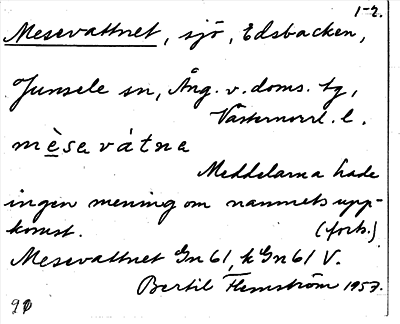 1-2.
Mesevattnet, sjö, Edsbacken,
Junsele sn, Ång. v. doms. tg,
Västernorrl. l.
mèsavátna
Meddelarna hade
ingen mening om namnets upp-
komst. (forts.)
Mesevattnet Gn 61, k Gn 61 V.
Bertil Flemström 1957.